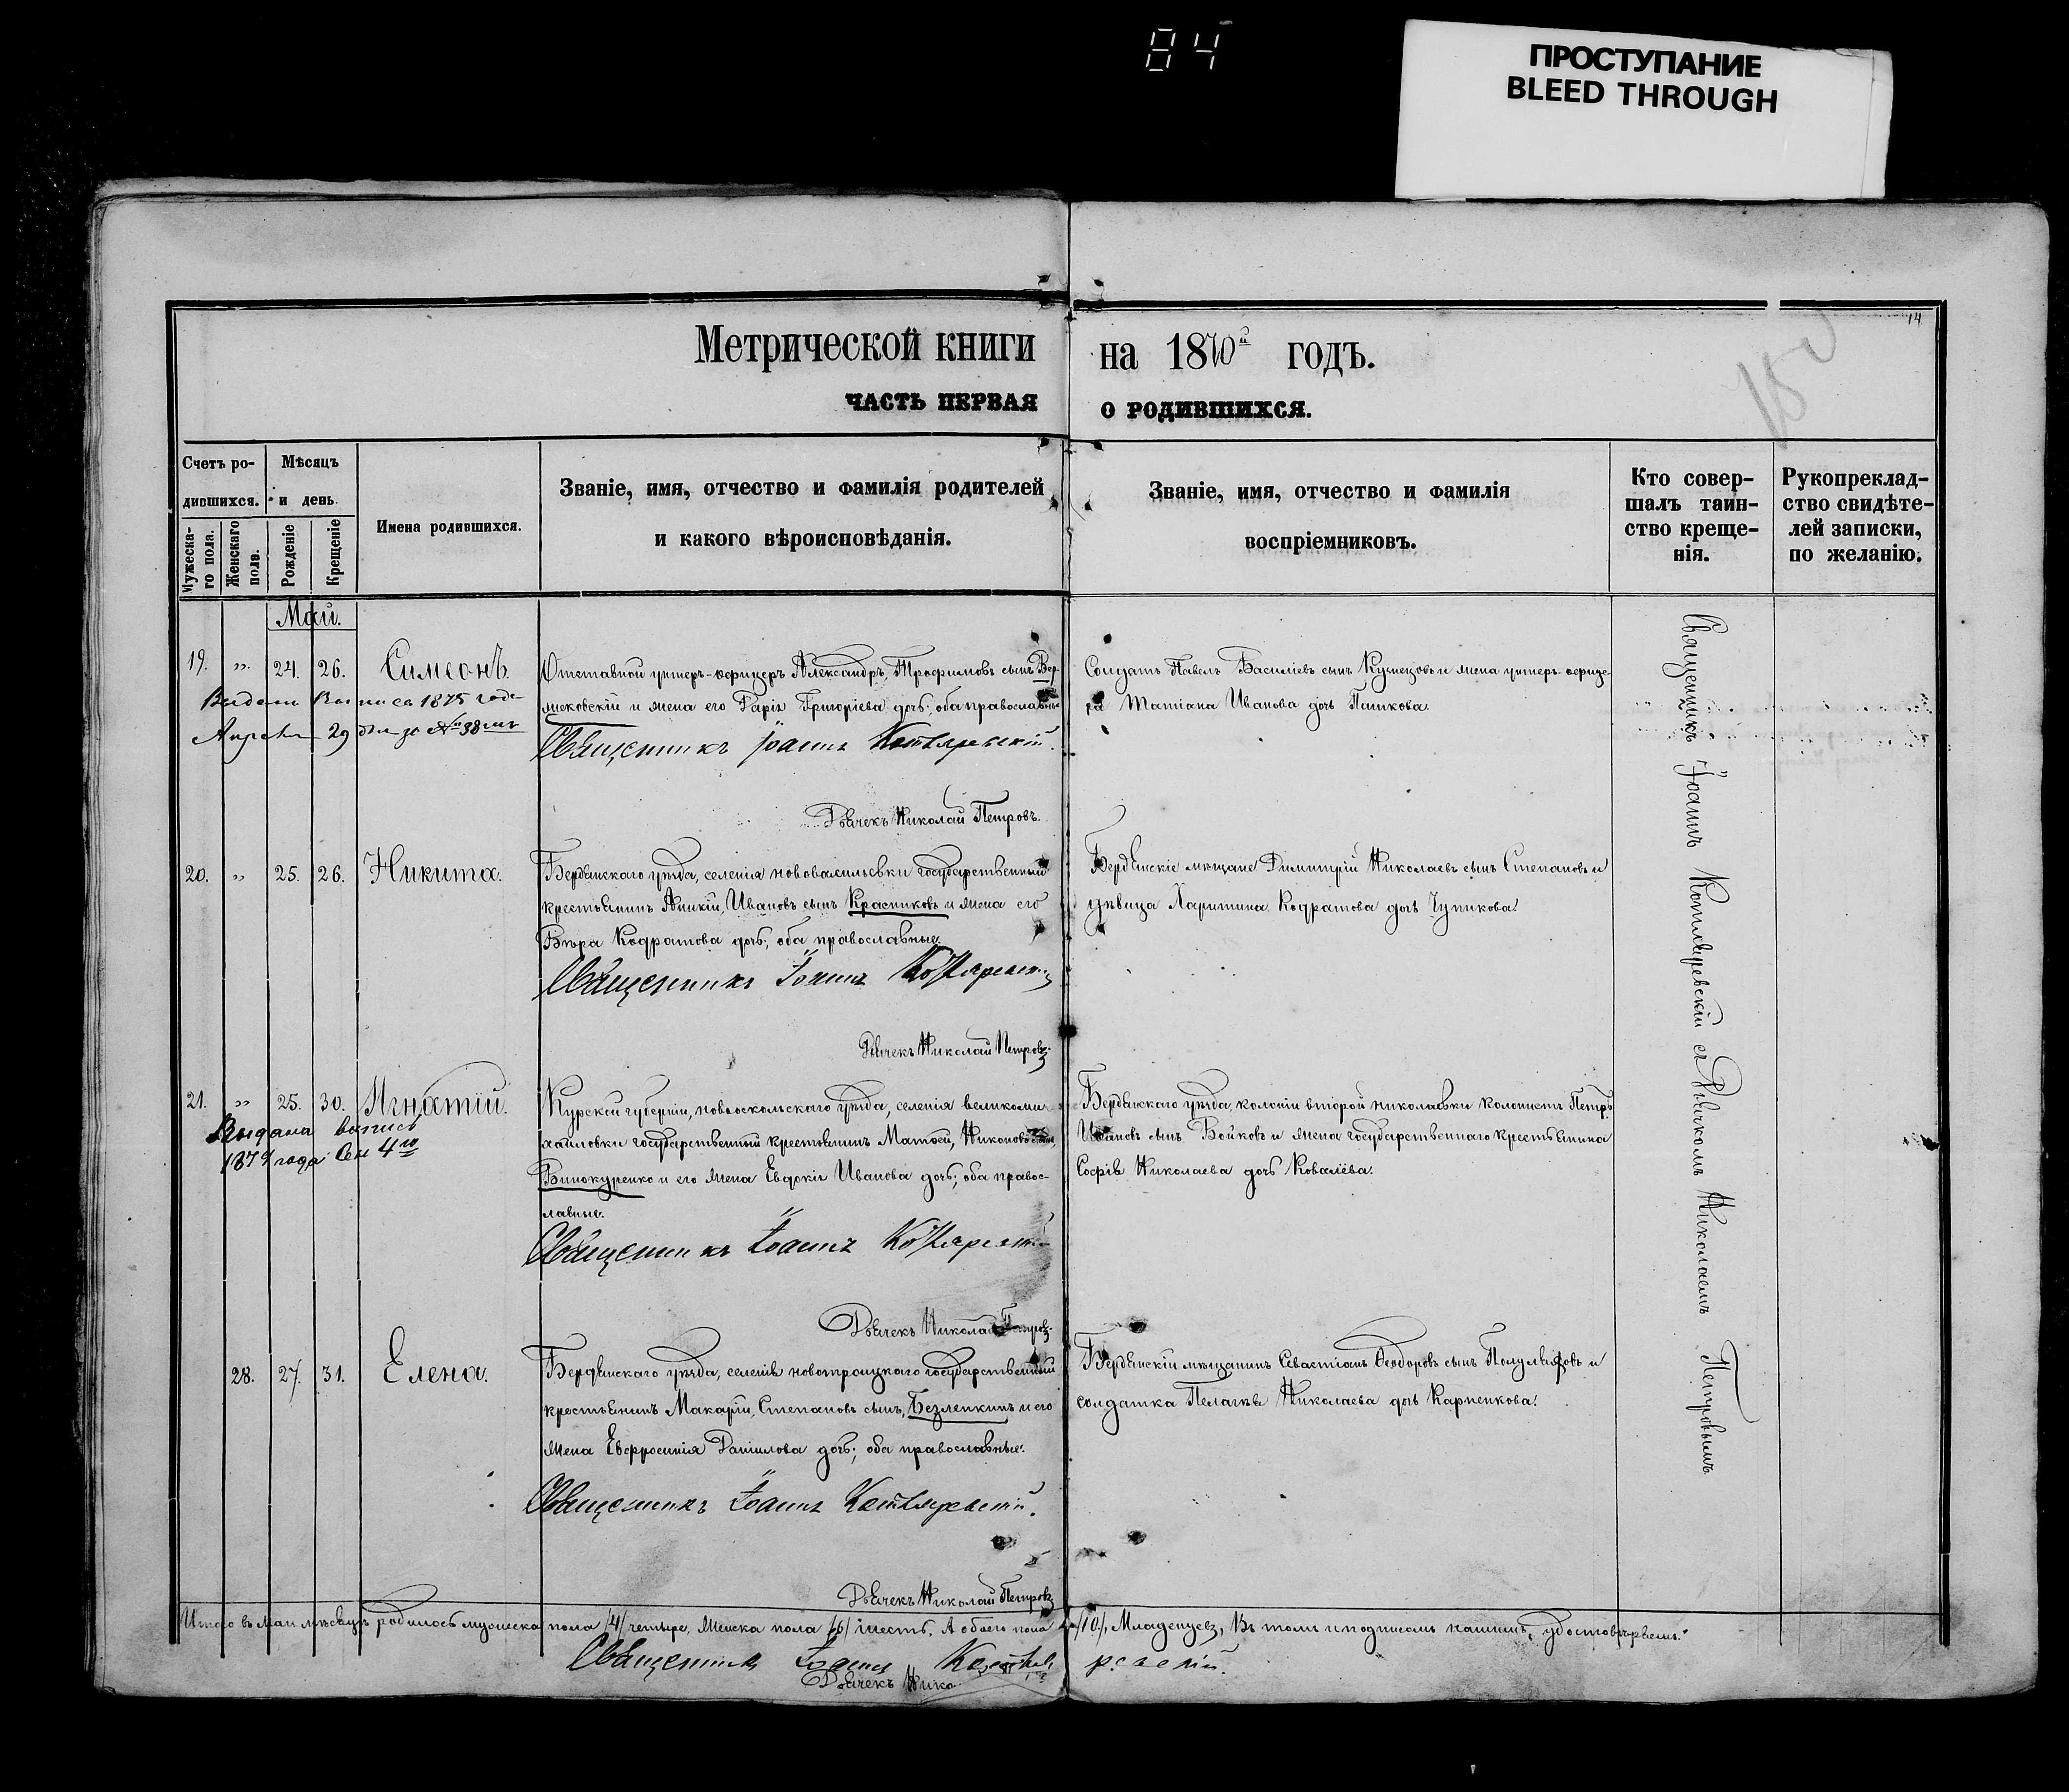 84
ПРОСТУПАНИЕ
BLEED THROUGH
14
Метрической книги на 1870й годъ.
ЧАСТЬ ПЕРВАЯ О РОДИВШИХСЯ.
Счетъ ро-
дившихся.
Мужеска-
го пола.
Женскаго
пола.
Мѣсяцъ
и день
Рожденіе
Крещеніе
Имена родившихся.
Званіе, имя, отчество и фамилія родителей
и какого вѣроисповѣданія.
Званіе, имя, отчество и фамилія
воспріемниковъ.
Кто совер-
шалъ таин-
ство креще-
нія.
Рукоприклад-
ство свидѣте-
лей записки,
по желанію.
Май.
19. „ 24. 26. Симеонъ.
1875
29 за № 38
Отставной унтеръ-офицеръ Александръ, Трофимовъ сынъ
и жена его Дарія Григоріева дочь; оба православные
Священникъ Іоаннъ Котляревскій.
Дьячекъ Николай Петровъ.
Солдатъ Павелъ Василіевъ сынъ Кузнецовъ и жена унтеръ-офице-
ра Татіана Иванова дочь Пашкова.
20. „ 25. 26. Никита.
Бердянскаго уѣзда, селенія нововасильевки государственный
крестьянинъ Іванов сынъ Красниковъ и жена его
Вѣра Кодратова дочь; оба православные.
Священникъ Іоаннъ Котляревскій
Дьячекъ Николай Петровъ.
Бердянскіе мѣщане Димитрій Николаевъ сынъ Степановъ и
дѣвица Харитина Кодратова дочь Чупикова.
21. „ 25. 30. Игнатій.
Выдана выпись
1879 года Сен 4го
Курской губерніи, новооскольскаго уѣзда, селенія великоми-
хайловки государственный крестьянинъ Матѳей, Никоновъ сынъ,
Винокуренко и его жена Евдокія Иванова дочь; оба правос-
лавные.
Священникъ Іоаннъ Котляревскій
Дьячекъ Николай Петровъ.
Бердянскаго уѣзда, колоніи второй николаевки колонистъ Петръ
Ивановъ сынъ Войковъ и жена государственнаго крестьянина
Софія Николаева дочь Ковалёва.
28. 27. 31. Елена.
Бердянскаго уѣзда, селенія новотроицкаго государственный
крестьянинъ Макарій, Степановъ сынъ, Безлепкинъ и его
жена Евфросинія Даніилова дочь; оба православные.
Священникъ Іоаннъ Котляревскій.
Дьячекъ Николай Петровъ
Бердянскій мѣщанинъ Севастіанъ Ѳеодоровъ сынъ и
солдатка Пелагія Николаева дочь Карпенкова.
Священникъ Іоаннъ Котляревскій съ Дьячкомъ Николаемъ Петровымъ
Итого въ маи мѣсяцѣ родилось мужеска пола /4/ четыре, Женска пола /6/ шесть, А обоего пола /10/, Младенцевъ, Въ томъ и подписомъ нашимъ, удостовѣряемъ.
Священникъ Іоаннъ Котляревскій.
Дьячекъ Нико